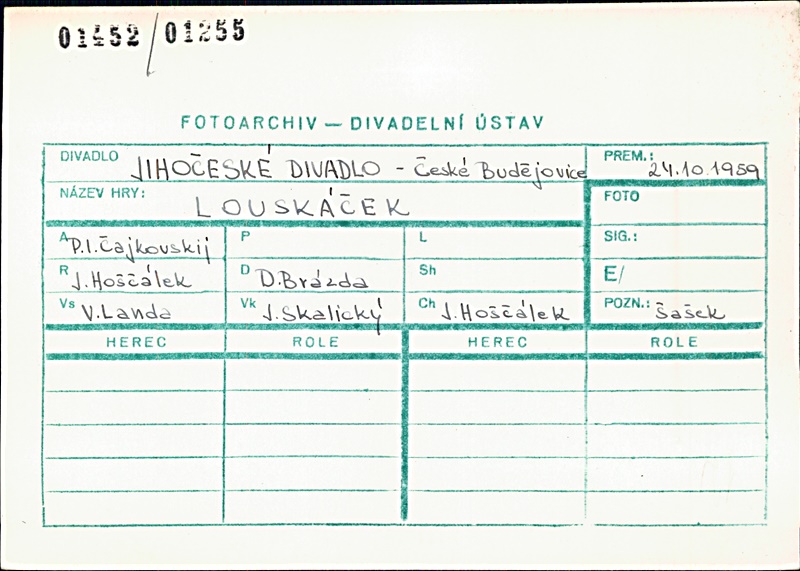 01452/01255
FOTOARCHIV — DIVADELNÍ ÚSTAV
DIVADLO JIHOČESKÉ DIVADLO - České Budějovice PREM.: 24.10.1959
NÁZEV HRY: LOUSKÁČEK FOTO
A P.I.Čajkovskij P L SIG.:
R J.Hoščálek D D.Brázda Sh E/
Vs V.Landa Vk J.Skalický Ch J.Hoščálek POZN.: Šašek
HEREC ROLE HEREC ROLE